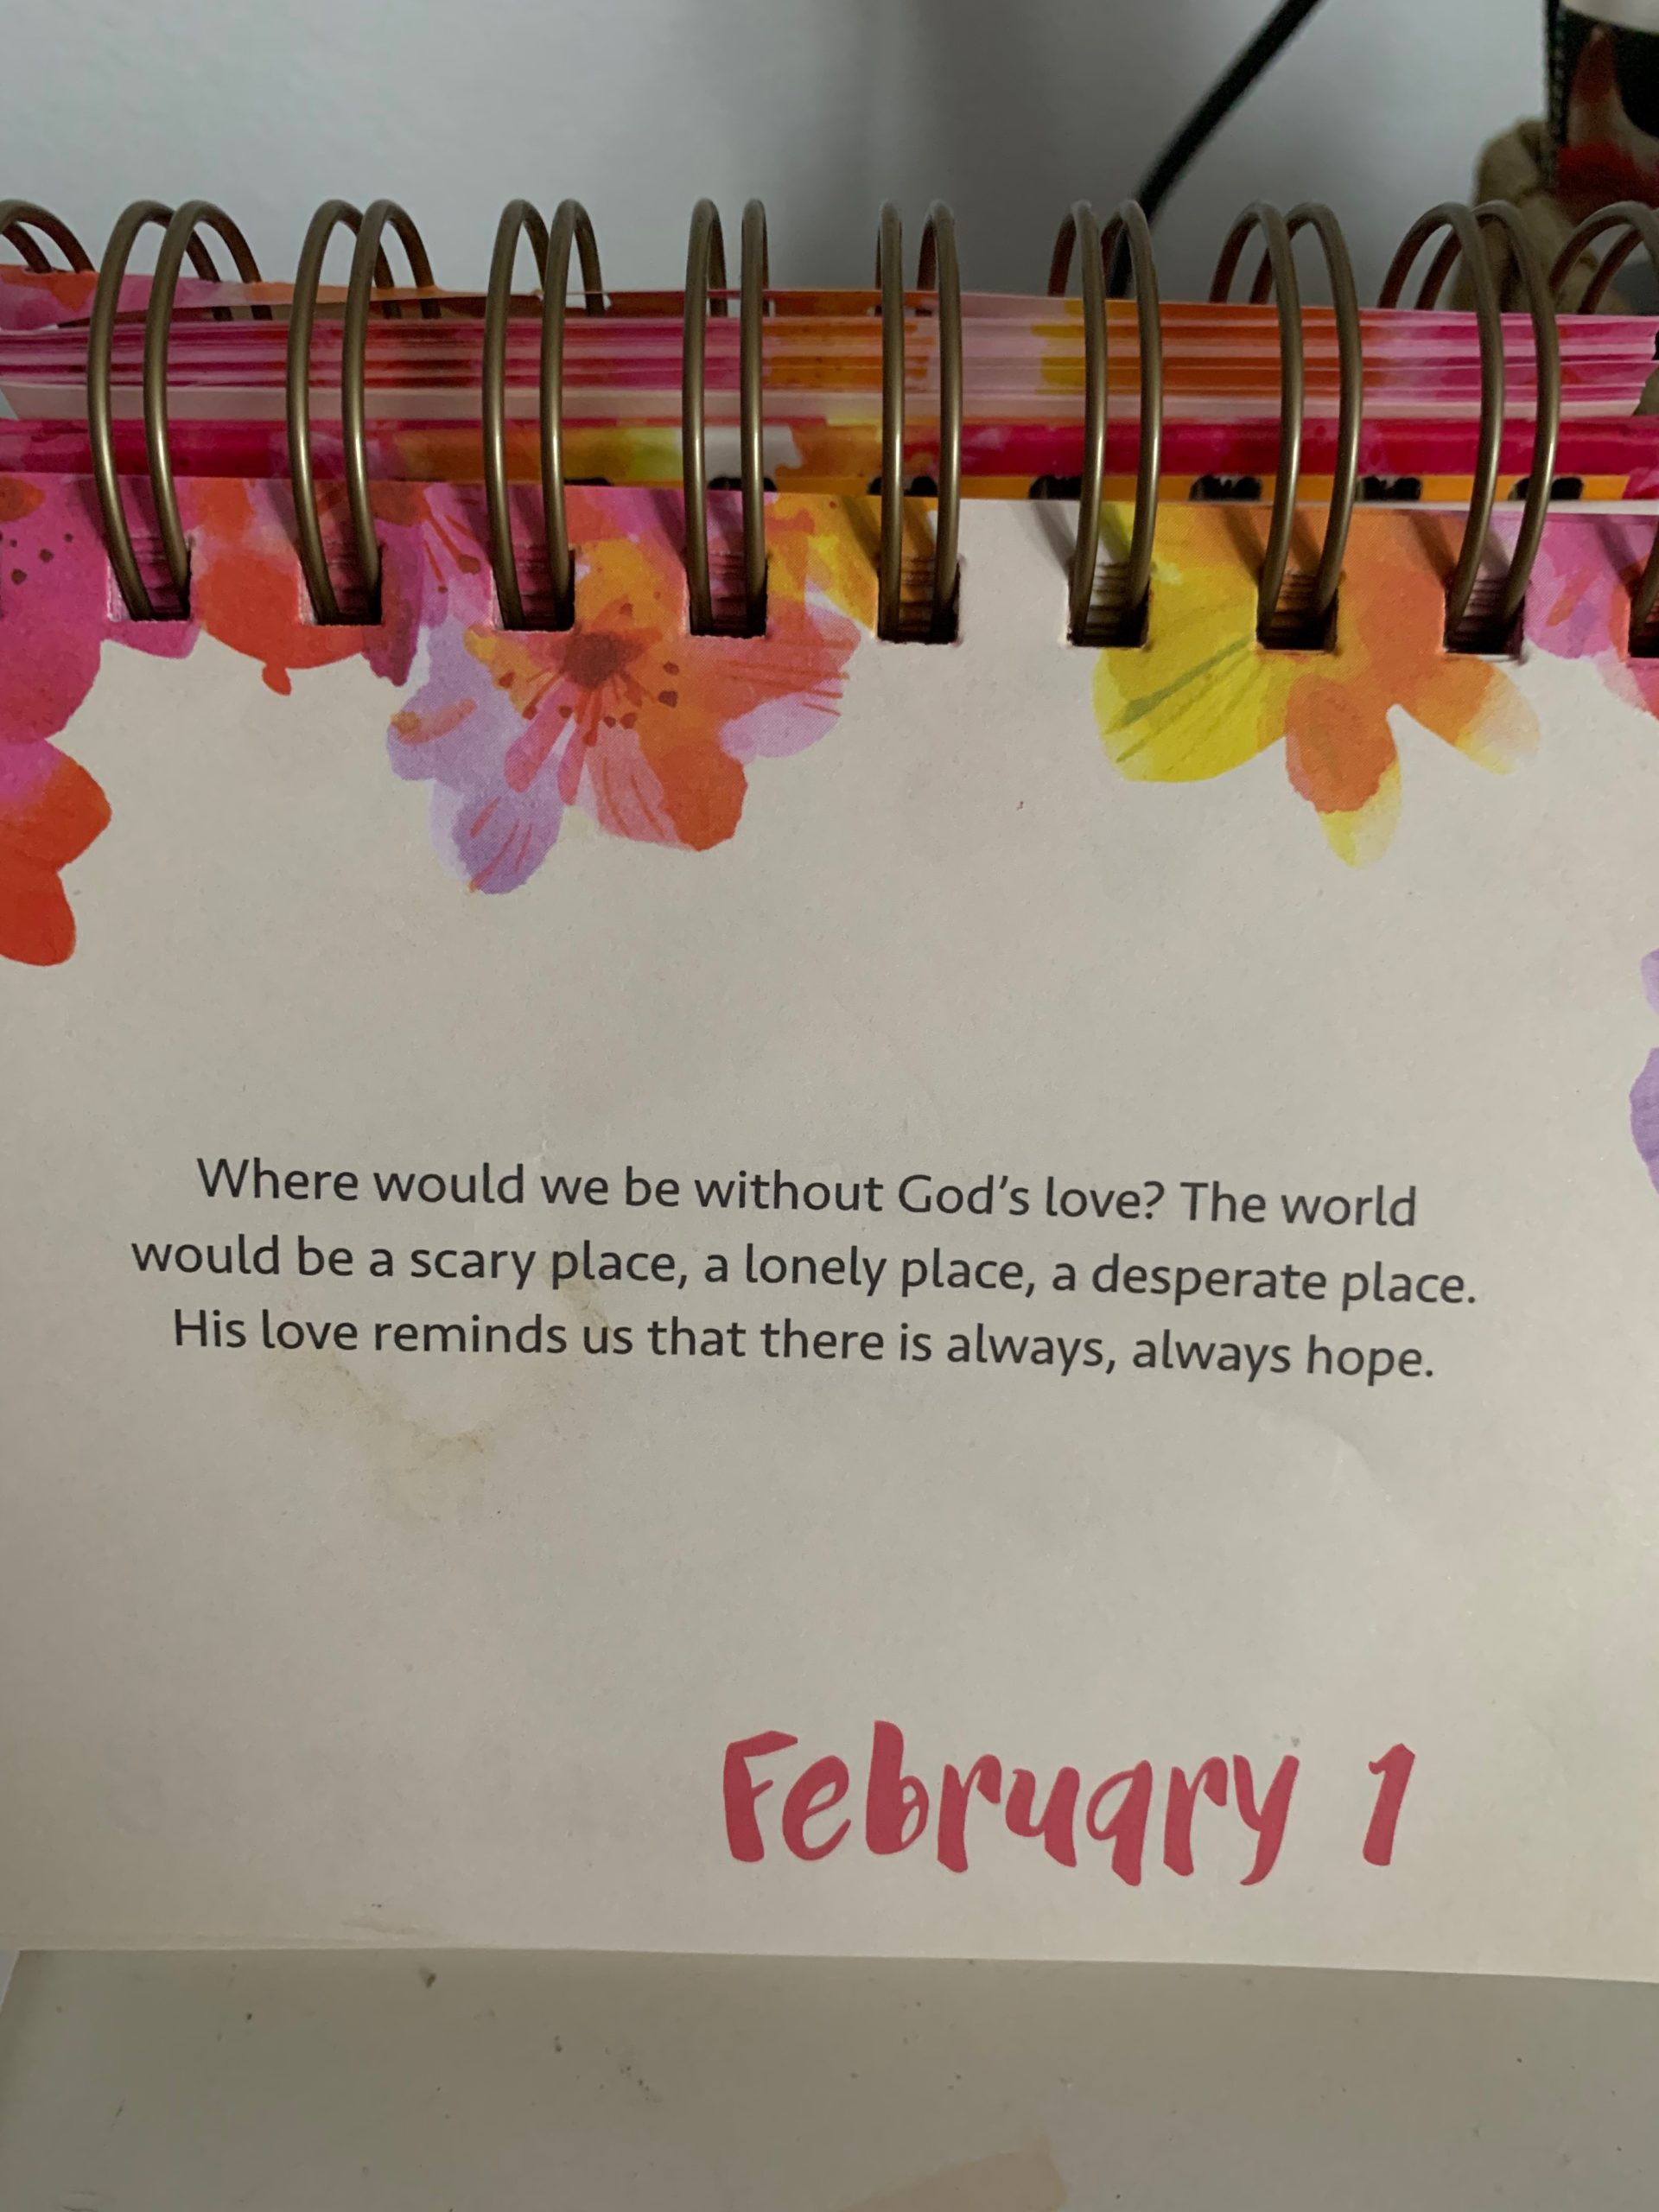 Where would we be without God’s love? The world
would be a scary place, a lonely place, a desperate place.
His love reminds us that there is always, always hope.
February 1